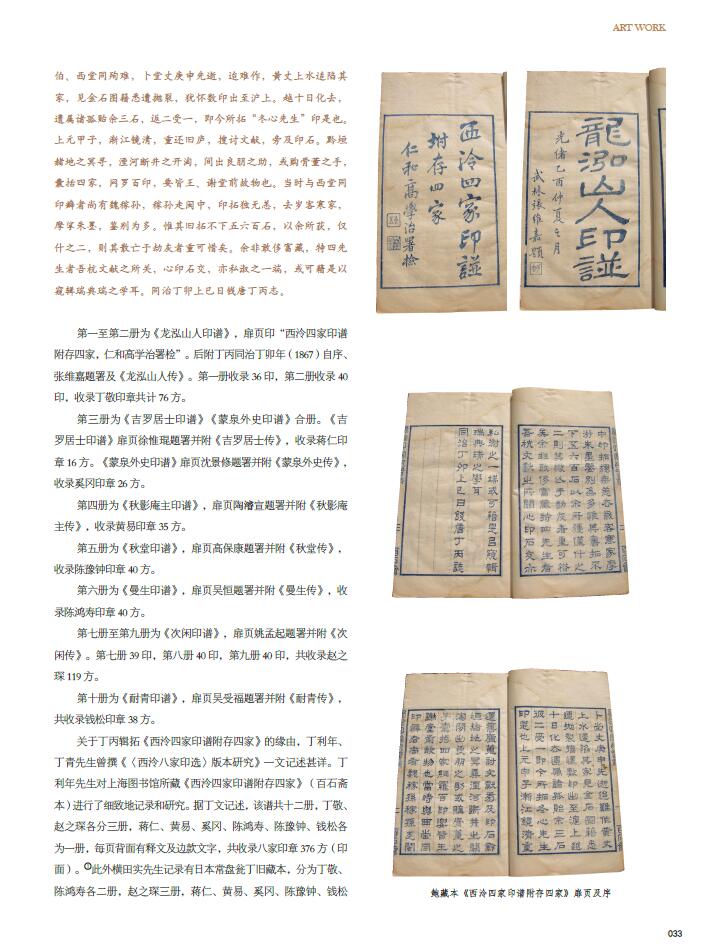 ART WORK
伯、西堂同殉难，卜堂丈庚申先逝，迨难作，黄丈上水送陷其
家，见金石图籍悉遭抛裂，犹怀数印出至沪上。越十日化去，
遗属诸孤贻余三石，返二受一，即今所拓“冬心先生”印是也。
上元甲子，浙江镜清，重还旧庐，搜讨文献，旁及印石。黔垣
赭地之冥寻，湮河断井之开淘，间出良朋之助，或购骨董之手，
囊括四家，网罗百印，要皆王、谢堂前故物也。当时与西堂同
印癖者尚有魏稼孙，稼孙走闽中，印拓独无恙，去岁客寒家，
摩挲朱墨，鉴别为多。惟其旧拓不下五六百石，以余所获，仅
什之二，则其散亡于劫灰者重可惜矣。余非敢侈富藏，特四先
生者吾杭文献之所关，心印石交，亦私淑之一端，或可藉是以
窥辑瑞典瑞之学耳。同治丁卯上巳日钱唐丁丙志。
第一至第二册为《龙泓山人印谱》，扉页印“西泠四家印谱
附存四家，仁和高学治署检”。后附丁丙同治丁卯年（1867）自序、
张维嘉题署及《龙泓山人传》。第一册收录 36 印，第二册收录 40
印，收录丁敬印章共计 76 方。
第三册为《吉罗居士印谱》《蒙泉外史印谱》合册。《吉
罗居士印谱》扉页徐惟琨题署并附《吉罗居士传》，收录蒋仁印
章 16 方。《蒙泉外史印谱》扉页沈景修题署并附《蒙泉外史传》，
收录奚冈印章 26 方。
第四册为《秋影庵主印谱》，扉页陶濬宣题署并附《秋影庵
主传》，收录黄易印章 35 方。
第五册为《秋堂印谱》，扉页高保康题署并附《秋堂传》，
收录陈豫钟印章 40 方。
第六册为《曼生印谱》，扉页吴恒题署并附《曼生传》，收
录陈鸿寿印章 40 方。
第七册至第九册为《次闲印谱》，扉页姚孟起题署并附《次
闲传》。第七册 39 印，第八册 40 印，第九册 40 印，共收录赵之
琛 119 方。
第十册为《耐青印谱》，扉页吴受福题署并附《耐青传》，
共收录钱松印章 38 方。
关于丁丙辑拓《西泠四家印谱附存四家》的缘由，丁利年、
丁青先生曾撰《〈西泠八家印选〉版本研究》一文记述甚详。丁
利年先生对上海图书馆所藏《西泠四家印谱附存四家》（百石斋
本）进行了细致地记录和研究。据丁文记述，该谱共十二册，丁敬、
赵之琛各分三册，蒋仁、黄易、奚冈、陈鸿寿、陈豫钟、钱松各
为一册，每页背面有释文及边款文字，共收录八家印章 376 方（印
面）。①此外横田实先生记录有日本常盘瓮丁旧藏本，分为丁敬、
陈鸿寿各二册，赵之琛三册，蒋仁、黄易、奚冈、陈豫钟、钱松
西泠四家印谱
坿存四家
仁和高學治署檢
龍泓山人印譜
光緒乙酉仲夏之月
武林張維嘉題
私淑之一端或可藉是吕窺輯
瑞典瑞之學耳
同治丁卯上巳日錢唐丁丙誌
鲍藏本《西泠四家印谱附存四家》扉页及序
033